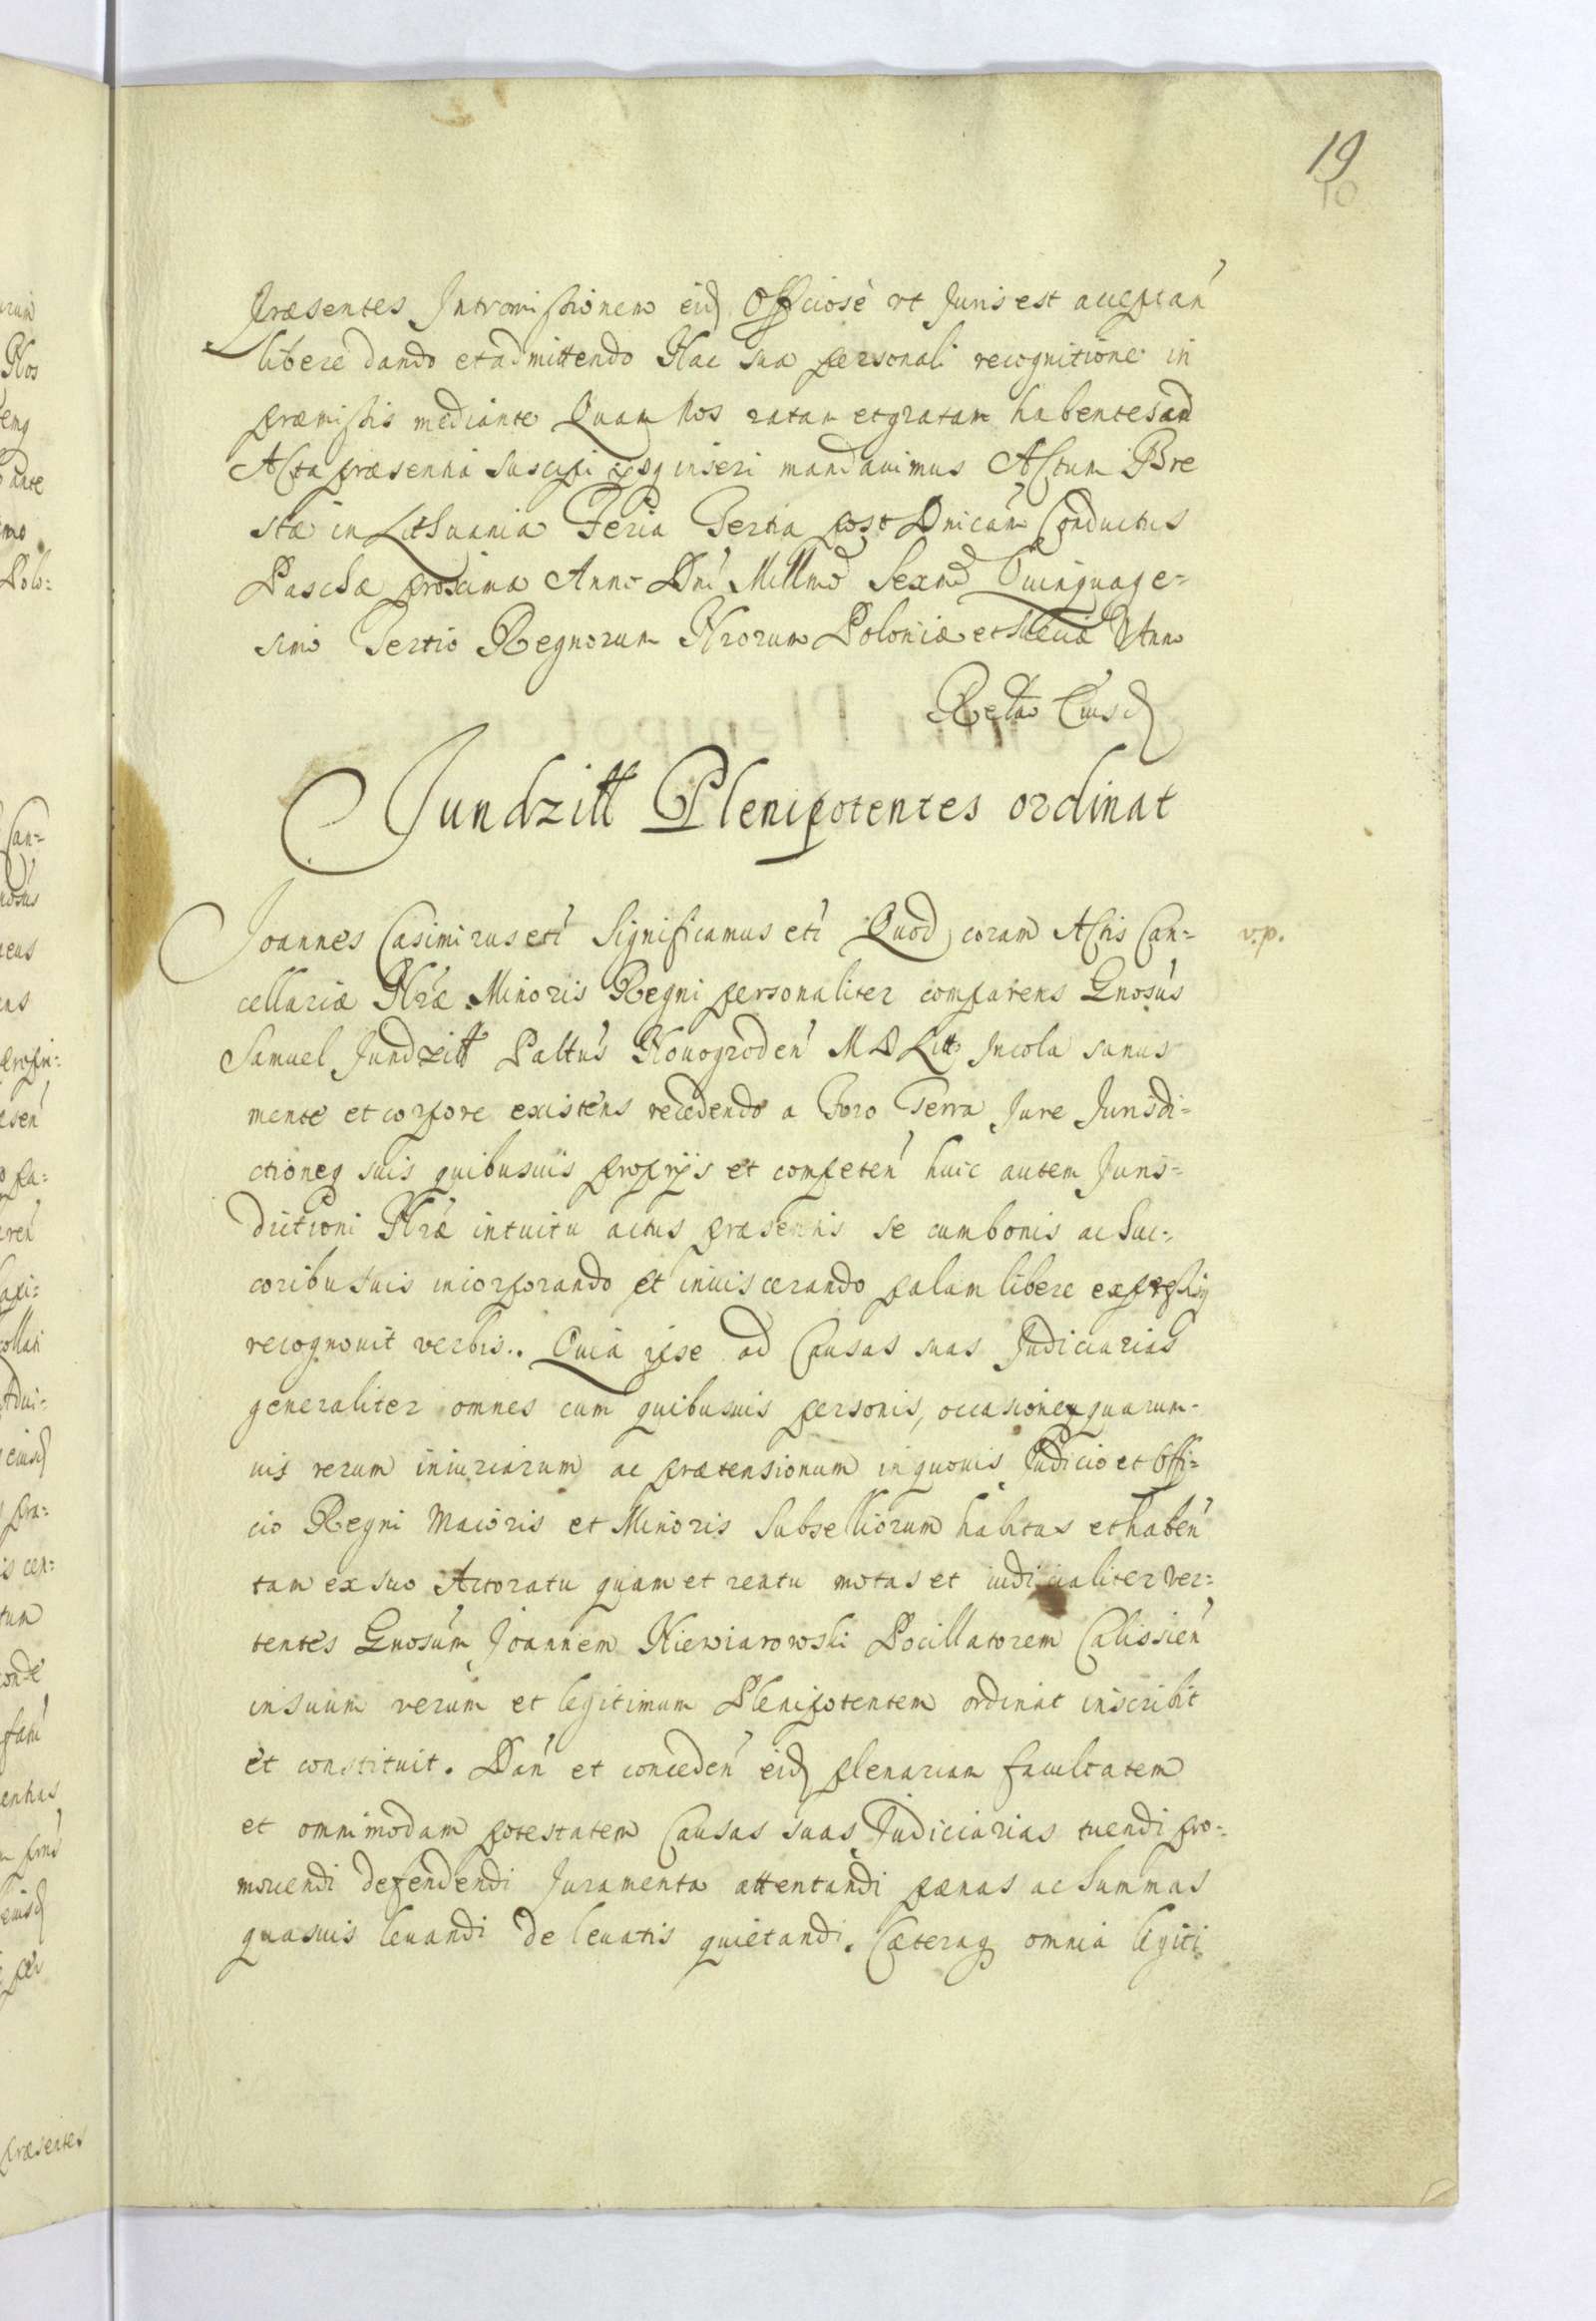 19
10
Præsentes Intromissionem eid Officiosè vt Juris est acceptan
libere dando et admittendo Hac sua personali recognitione in
præmissis mediante Quam Nos ratam et gratam habentes ad
Acta præsentia suscipi ijsq inseri mandauimus Actum Bre
stæ in Lithuania Feria Tertia post Dnicam Conductus
Paschæ proxima Anno Dni Millmo Sexmo Quinquage=
simo Tertio Regnorum Nrorum Poloniæ et Sueciæ Anno
Relao Eiusd
Jundzitt Plenipotentes ordinat
Joannes Casimirus etc Significamus etc Quod coram Actis Can=
v.p.
cellariæ Nræ Minoris Regni personaliter comparens Gnosus
Samuel Jundzitt Palttus Nouogroden M D Litt Incola sanus
mente et corpore existens recedendo a Foro Terra Jure Jurisdi=
ctioneq suis quibusuis proprijs et competen huic autem Juris=
dictioni Nræ intuitu actus præsentis se cum bonis ac Suc=
coribus suis incorporando et inuiscerando palam libere expressisq
recognouit verbis.. Quia ipse ad Causas suas Judiciarias
generaliter omnes cum quibusuis personis, occasioneq quarum-
uis rerum iniuriarum ac prætensionum in quouis Judicio et Offi=
cio Regni Maioris et Minoris Subselliorum habitas et haben
tam ex suo Actoratu quam et reatu motas et iudicialiter ver=
tentes Gnosum Joannem Niewiarowski Pocillatorem Calissien
in suum verum et legitimum Plenipotentem ordinat inscribit
et constituit. Dan et conceden eid plenariam facultatem
et omnimodam potestatem Causas suas Judiciarias tuendi pro=
mouendi defendendi Juramenta attentandi pænas ac Summas
quasuis leuandi de leuatis quietandi. Cæteraq omnia legiti=